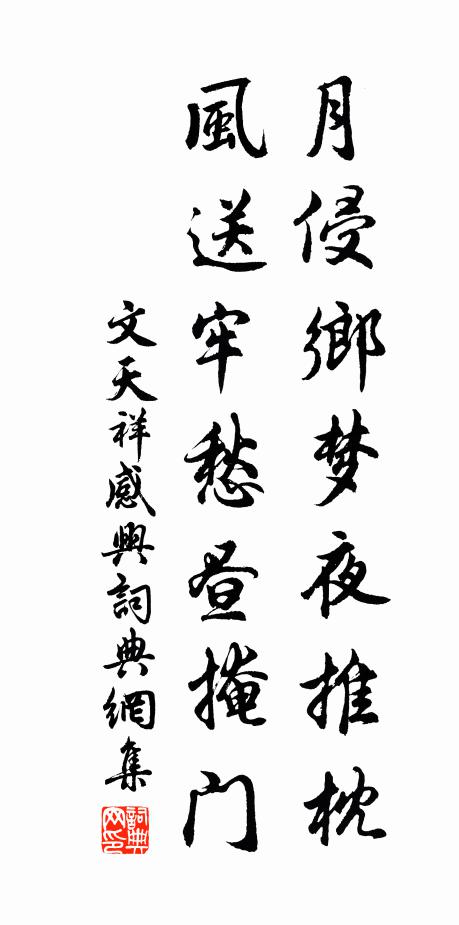 月侵鄉梦夜推枕
風送牢愁昼掩门
文天祥感興詞典網集
詞典网印